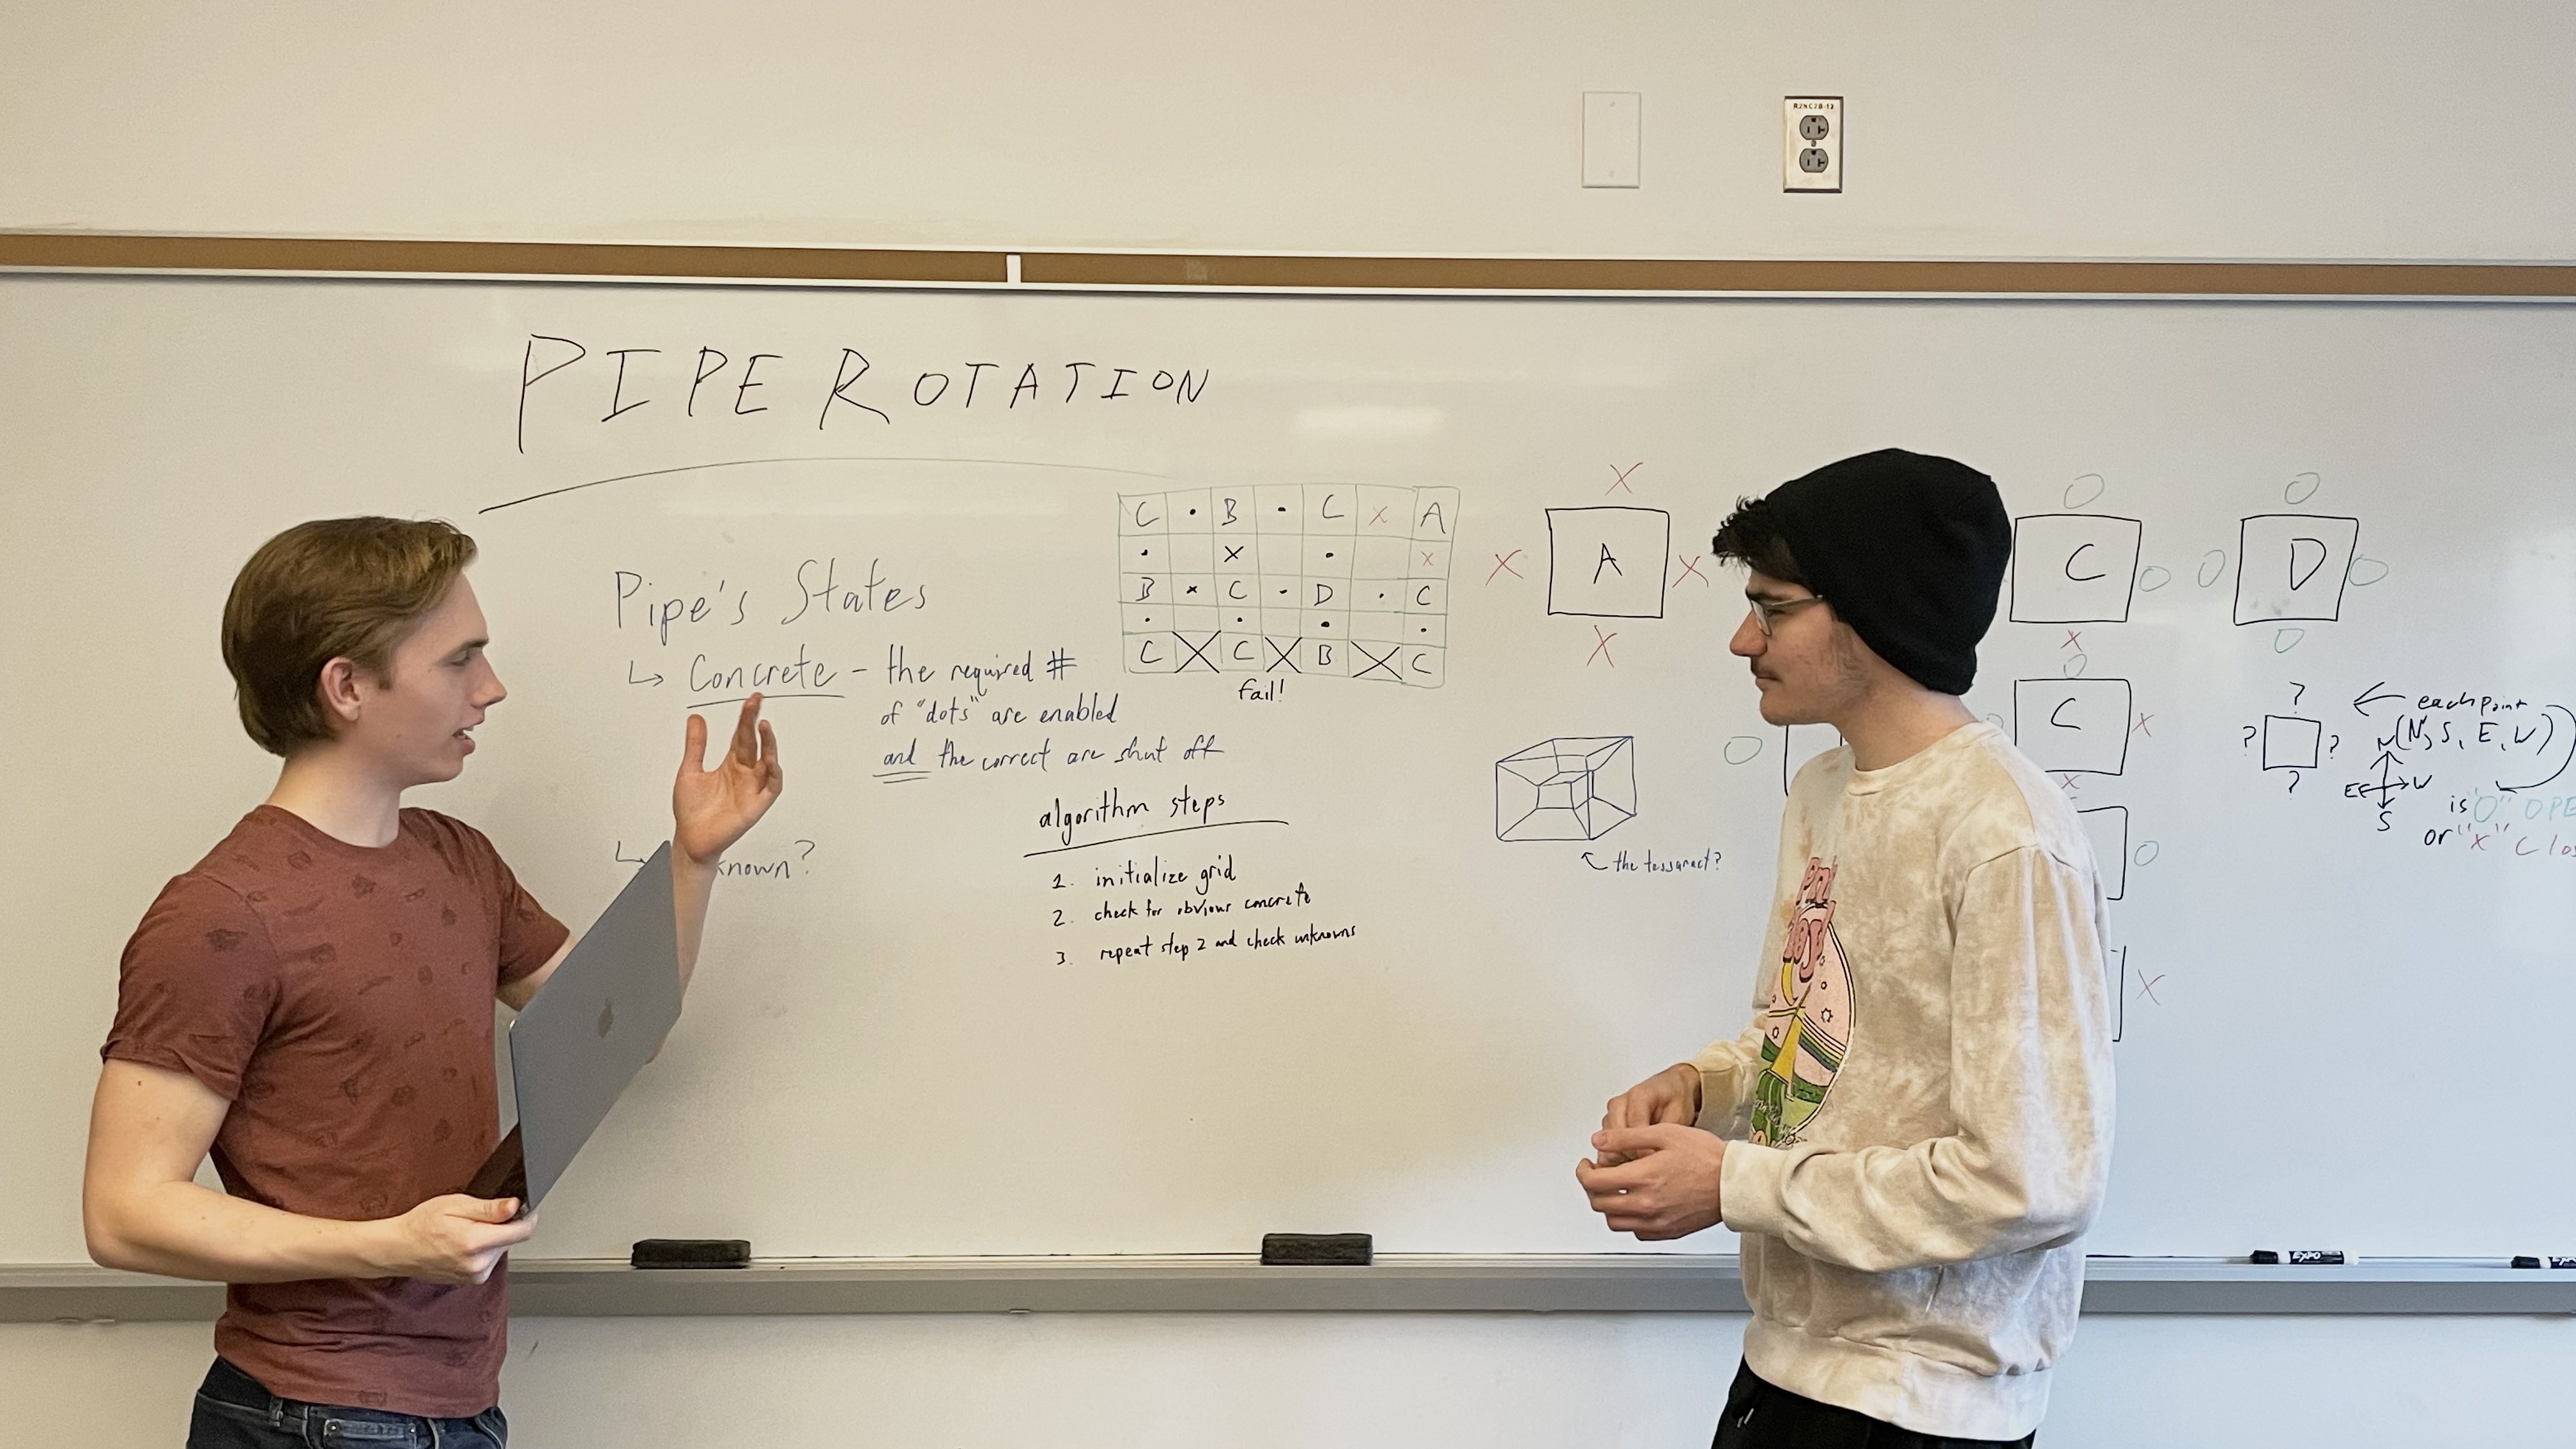 R2NC2B-12
PIPE ROTATION
Pipe's States
↳ Concrete - the required #
of "dots" are enabled
and the correct are shut off
↳ known?
C • B • C X A
• X • X
B × C • D • C
• • • •
C X C X B X C
fail!
algorithm steps
1. initialize grid
2. check for obvious concrete
3. repeat step 2 and check unknowns
X
X A X
X
← the tessaract?
O
C O
X
O
C X
X
O
O
X
O
O D O
O
?
? ?
?
← each point
(N, S, E, W)
N
E W
S
is "O" OPE
or "X" Clos
EXPO